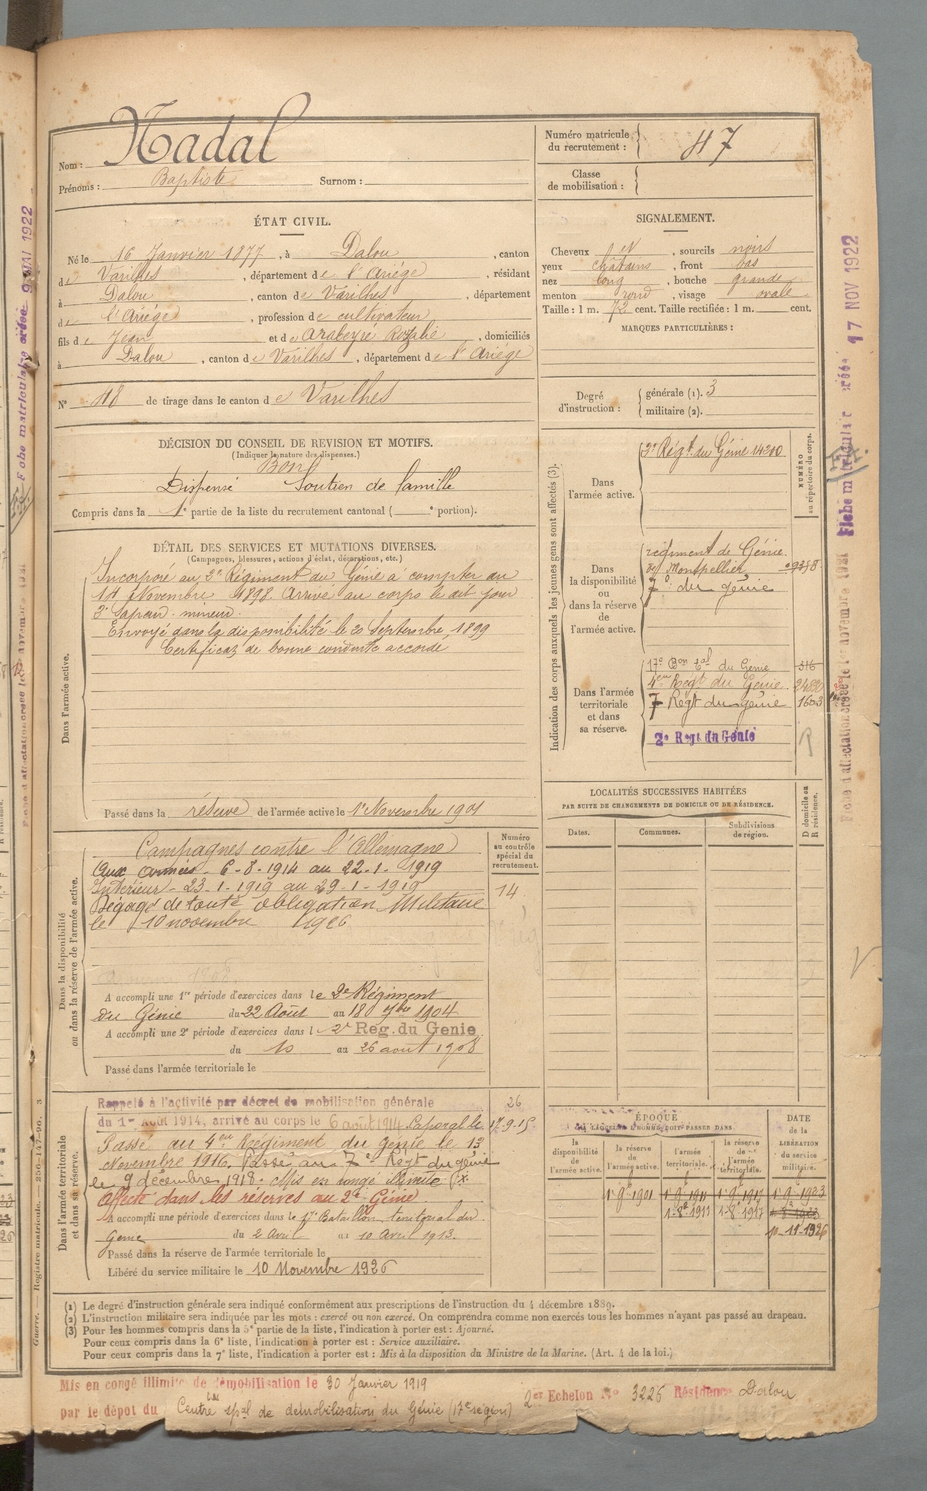 Nom : Nadal
Prénoms : Baptiste Surnom :
Numéro matricule du recrutement : 47
Classe de mobilisation :
ÉTAT CIVIL.
Né le 16 Janvier 1877, à Dalou, canton
de Varilhes, département de l'Ariège, résidant
à Dalou, canton de Varilhes, département
de l'Ariège, profession de cultivateur
fils de Jean et de Arabeyre Rozalie, domiciliés
à Dalou, canton de Varilhes, département de l'Ariège
N° 48 de tirage dans le canton de Varilhes
SIGNALEMENT.
Cheveux, sourcils noirs
yeux châtains, front bas
nez long, bouche grande
menton rond, visage ovale
Taille : 1 m. 72 cent. Taille rectifiée : 1 m. cent.
MARQUES PARTICULIÈRES :
Degré d'instruction : générale (1). 3
militaire (2).
DÉCISION DU CONSEIL DE REVISION ET MOTIFS.
(Indiquer la nature des dispenses.)
Bon
Dispensé Soutien de famille
Compris dans la 1e partie de la liste du recrutement cantonal ( e portion).
DÉTAIL DES SERVICES ET MUTATIONS DIVERSES.
(Campagnes, blessures, actions d'éclat, décorations, etc.)
Dans l'armée active.
Incorporé au 2e Régiment du Génie à compter du
14 Novembre 1898. Arrivé au corps le dit jour
2e Sapeur-mineur.
Envoyé dans la disponibilité le 20 Septembre 1899
Certificat de bonne conduite accordé
Passé dans la réserve de l'armée active le 1er Novembre 1901
Indication des corps auxquels les jeunes gens sont affectés (3).
NUMÉRO au répertoire du corps.
Dans l'armée active.
2e Régt du Génie 14200
Dans la disponibilité ou dans la réserve de l'armée active.
régiment de Génie
Montpellier
7e du génie
Dans l'armée territoriale et dans sa réserve.
17e Bon tal du Génie 316
4eme Régt du Génie
7 Régt du génie 1603
2e Regt du Génie
LOCALITÉS SUCCESSIVES HABITÉES
PAR SUITE DE CHANGEMENTS DE DOMICILE OU DE RÉSIDENCE.
Dates. Communes. Subdivisions de région. D domicile ou R résidence.
Dans la disponibilité ou dans la réserve de l'armée active.
Numéro au contrôle spécial du recrutement.
14
Campagnes contre l'Allemagne
Aux armées - 6-8-1914 au 22-1-1919
Intérieur - 23-1-1919 au 29-1-1919
Dégagé de toute obligation Militaire
le 10 novembre 1926
A accompli une 1re période d'exercices dans le 2e Régiment
du Génie du 22 Août au 18 7bre 1904
A accompli une 2e période d'exercices dans l 2e Reg. du Genie
du 10 au 26 aout 1908
Passé dans l'armée territoriale le
Dans l'armée territoriale et dans sa réserve.
26
Rappelé à l'activité par décret de mobilisation générale
du 1er août 1914, arrivé au corps le 6 août 1914 Caporal le 17-9-15
Passé au 4eme Régiment du génie le 13
novembre 1916. Passé au 7e Régt du génie
le 9 décembre 1918. Mis en congé illimité (x.
Affecté dans les réserves au 2e Génie
A accompli une période d'exercices dans le 17e Bataillon territorial du
Génie du 2 Avril au 10 Avril 1913.
Passé dans la réserve de l'armée territoriale le
Libéré du service militaire le 10 Novembre 1926
ÉPOQUE
la disponibilité de l'armée active. la réserve de l'armée active. l'armée territoriale. la réserve de l'armée territoriale. DATE de la LIBÉRATION DU service militaire.
1-9bre 1901 1-9bre 1911 1-9bre 1917 1-9bre 1923
10-11-1926
(1) Le degré d'instruction générale sera indiqué conformément aux prescriptions de l'instruction du 4 décembre 1889.
(2) L'instruction militaire sera indiquée par les mots : exercé ou non exercé. On comprendra comme non exercés tous les hommes n'ayant pas passé au drapeau.
(3) Pour les hommes compris dans la 5e partie de la liste, l'indication à porter est : Ajourné.
Pour ceux compris dans la 6e liste, l'indication à porter est : Service auxiliaire.
Pour ceux compris dans la 7e liste, l'indication à porter est : Mis à la disposition du Ministre de la Marine. (Art. 4 de la loi.)
Mis en congé illimité de démobilisation le 30 Janvier 1919
par le dépot du Centre spal de démobilisation du Génie (17e région)
2er Echelon No 3226 Résidence Dalou
Fiche matriculaire créée 17 NOV 1922
Fiche d'affectation créée le 1er novembre 1931
Fiche matriculaire créée 9 MAI 1922